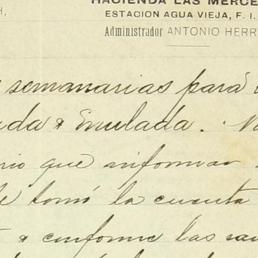 HACIENDA LAS MERCE
ESTACION AGUA VIEJA, F. I.
Administrador ANTONIO HERR
semanarias para
ada & Emulada.
rio que informar
tomó la cuenta
& conforme las